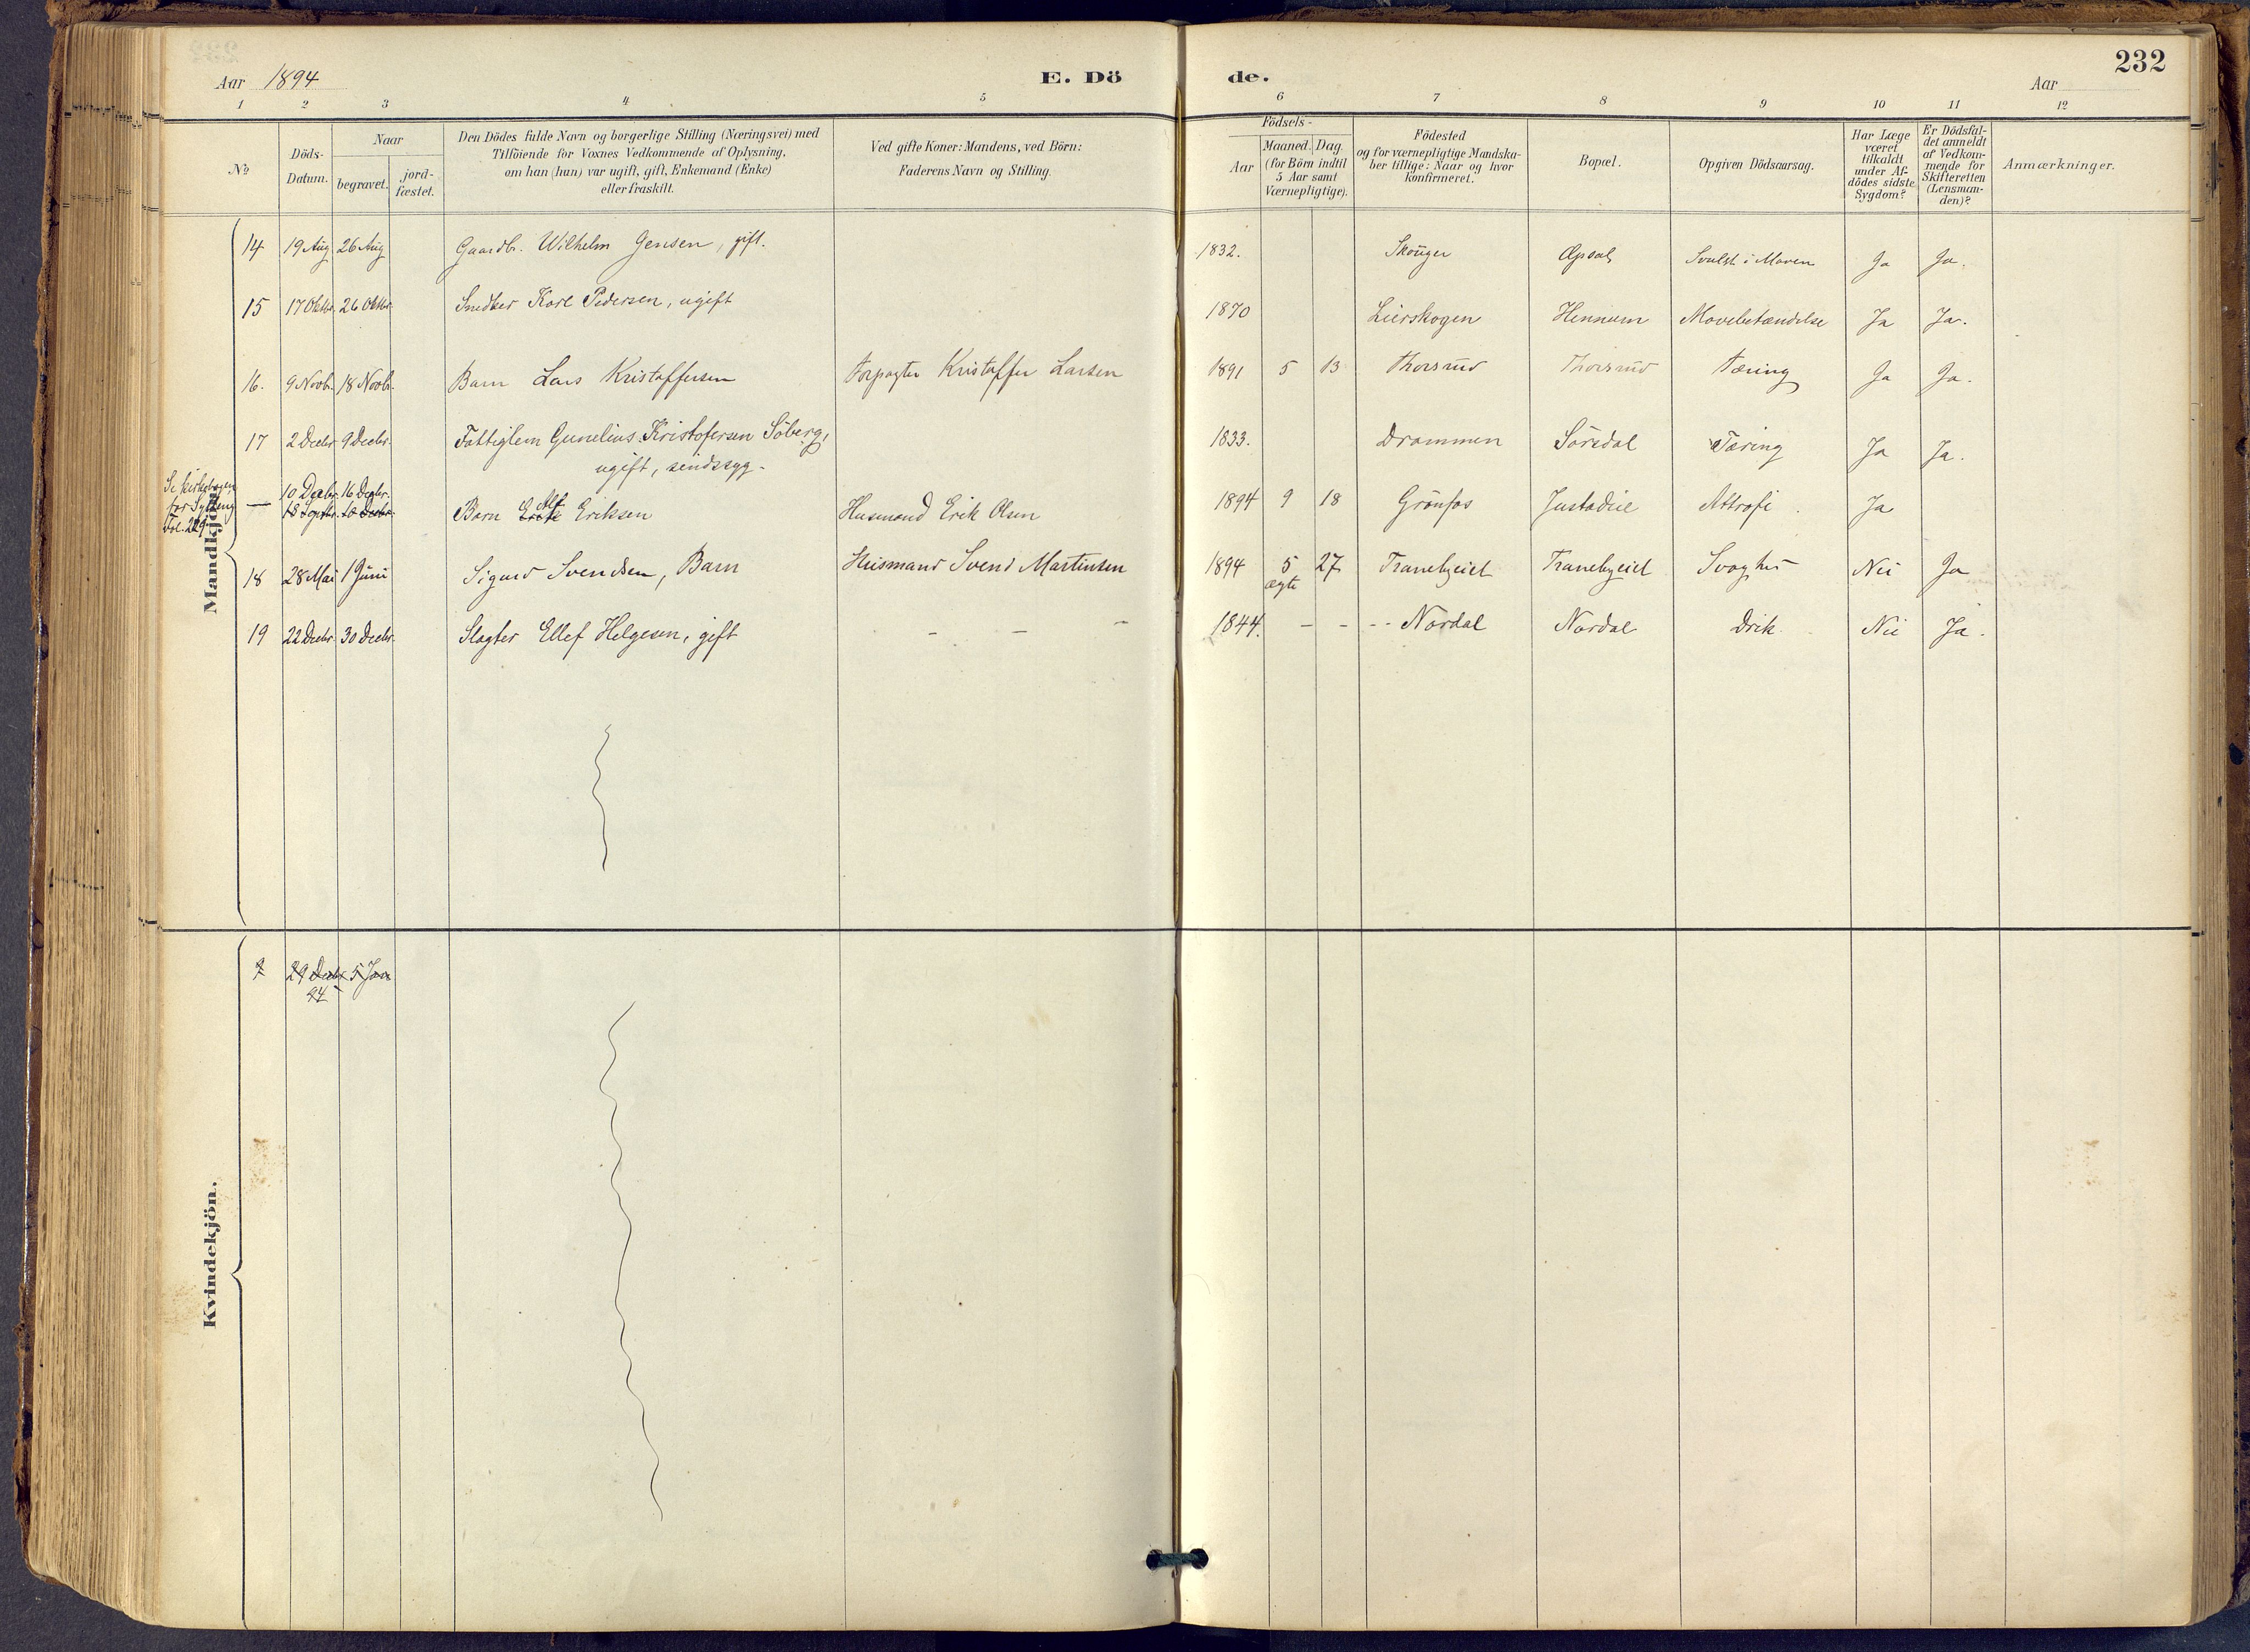 232
Aar 1894 E. Dö de. Aar
1 2 3 4 5 6 7 8 9 10 11 12
№
Döds-
Datum.
Naar
begravet.
jord-
fæstet.
Den Dödes fulde Navn og borgerlige Stilling (Næringsvei) med
Tilföiende for Voxnes Vedkommende af Oplysning,
om han (hun) var ugift, gift, Enkemand (Enke)
eller fraskilt.
Ved gifte Koner: Mandens, ved Börn:
Faderens Navn og Stilling.
Födsels-
Aar
Maaned. Dag.
(for Börn indtil
5 Aar samt
Værnepligtige).
Födested
og for værnepligtige Mandska-
ber tillige: Naar og hvor
konfirmeret.
Bopæl.
Opgiven Dödsaarsag.
Har Læge
været
tilkaldt
under Af-
dödes sidste
Sygdom?
Er Dödsfal-
det anmeldt
af Vedkom-
mende for
Skifteretten
(Lensman-
den)?
Anmærkninger.
Mandkjön.
14 19 Aug 26 Aug Gaardbr. Wilhelm Jensen, gift. 1832. Skouger Øpsal Svulst i Maven Ja Ja.
15 17 Oktbr. 26 Oktbr. Snedker Karl Pedersen, ugift 1870 Lierskogen Hennum Mavebetændelse Ja Ja.
16. 9 Novbr. 18 Novbr. Barn Lars Kristoffersen Forpagter Kristoffer Larsen 1891 5 13 Thorsrud Thorsrud Tæring Ja Ja.
17 2 Decbr. 9 Decbr. Fattiglem Gunelius Kristofersen Söberg, 1833. Drammen Sörsdal Tæring Ja Ja.
ugift, sindssyg.
Se kirkebogen
for Sylling
Fol. 229
10 Decbr. 16 Decbr.
— 18 Septbr. 18 Decbr. Barn Erik Alf Eriksen Husmand Erik Olsen 1894 9 18 Grönfos Justadeie Attrofi. Ja
18 28 Mai 1 Juni Sigurd Svendsen, Barn Husmand Svend Martinsen 1894 5 27 Tranebyeiet Tranebyeiet Svaghed Nei Ja
ægte
19 22 Decbr. 30 Decbr. Slagter Ellef Helgesen, gift – – – 1844. – – -- Nordal Nordal Drik Nei Ja.
Kvindekjön.
29 Decbr 5 Jan
94